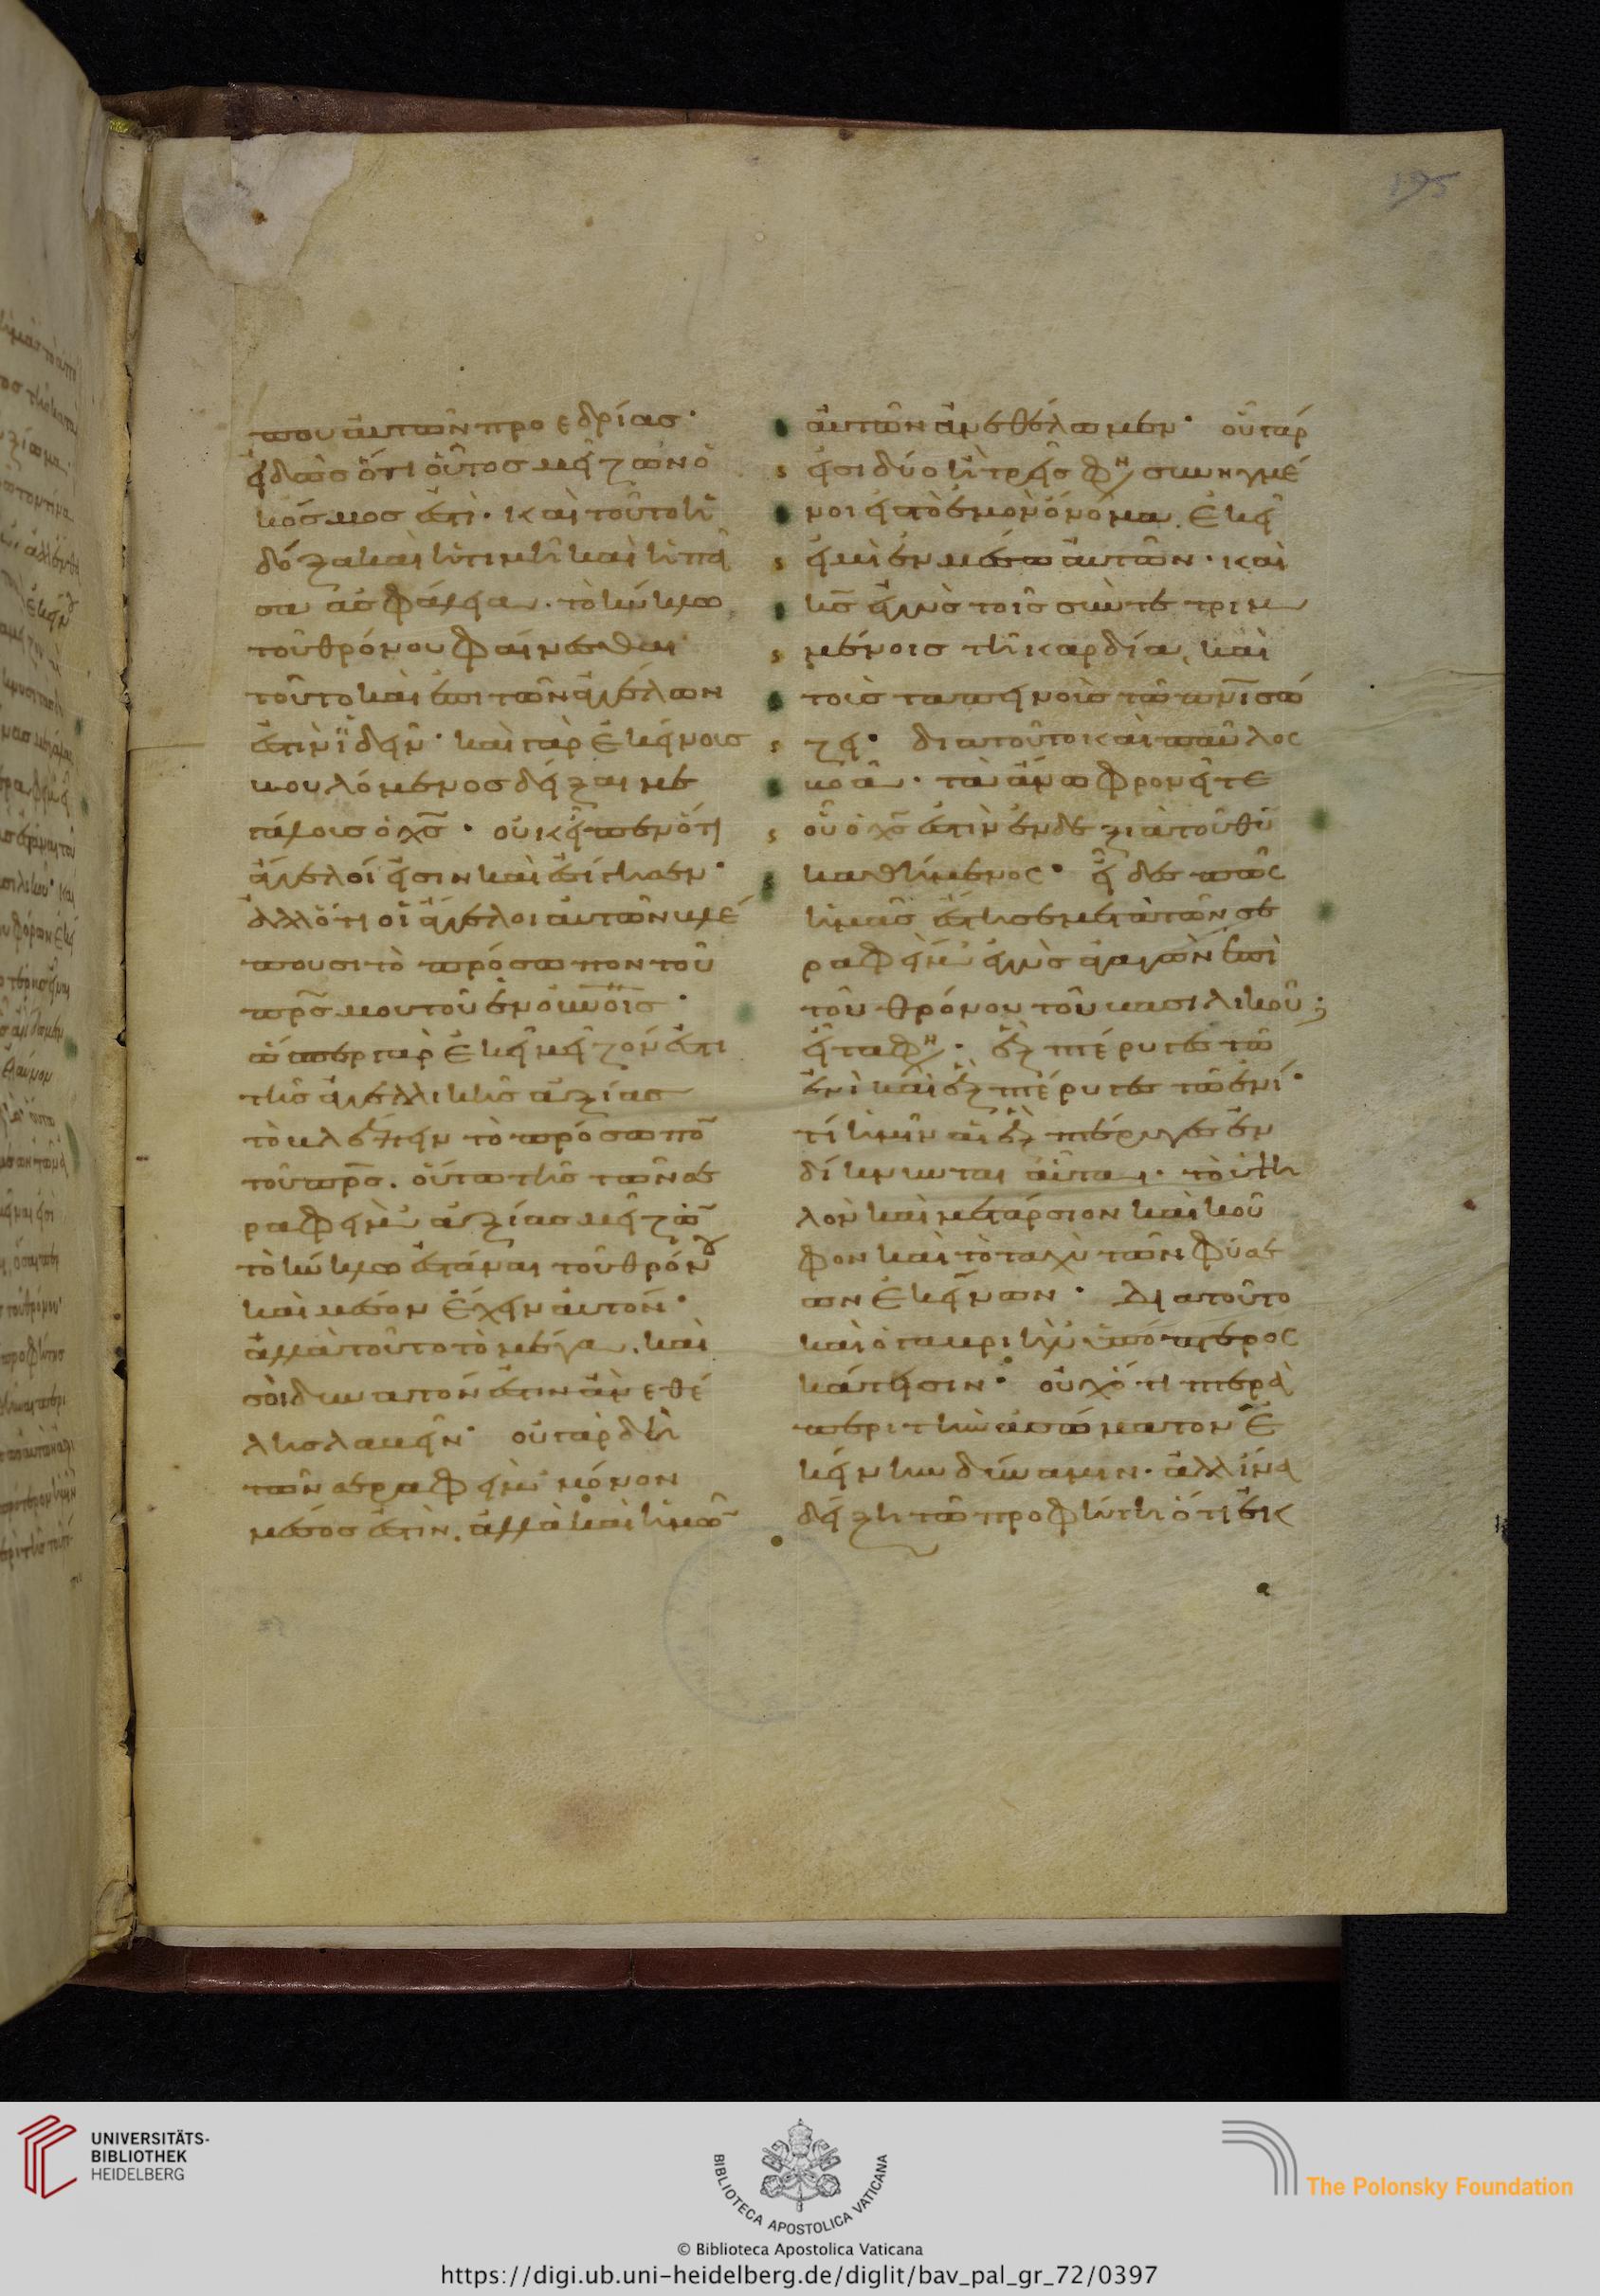 που αὐτῶν προεδρίας·
εἰδὼς ὅτι οὗτος μείζων ὁ
κόσμος ἐστί· καὶ τοῦτο ἡ
δόξα καὶ ἡ τιμὴ καὶ ἡ πᾶ
σα ἀσφάλεια· τὸ κύκλω
τοῦ θρόνου φαίνεσθαι
τοῦτο καὶ ἐπι τῶν ἀγγέλων
ἐστὶν ἰδεῖν· καὶ γὰρ ἐκείνοις
βουλόμενος δεῖξαι με
γάλοις ὁ χς· οὐκ εἶπεν ὅτι
ἄγγελοί εἰσιν καὶ ἐσίγησεν·
ἀλλ ὅτι οἱ ἄγγελοι αὐτῶν βλέ
πουσι τὸ πρόσωπον τοῦ
πρς μου τοῦ ἐν οὐνοῖς·
ὥσπερ γὰρ ἐκεῖ μεῖζον ἐστι
τῆς ἀγγελικῆς ἀξίας
τὸ βλέπειν τὸ πρόσωπο
τοῦ πρς. οὕτω τῆς τῶν σε
ραφεὶμ ἀξίας μεῖζο
τὸ κύκλω ἑστάναι τοῦ θρόνου
καὶ μέσον ἔχειν αὐτόν·
ἀλλὰ τοῦτο τὸ μέγα, καὶ
σοὶ δυνατόν ἐστιν ἂν ἐθέ
λης λαβεῖν· οὐ γὰρ δὴ
τῶν σεραφεὶμ μόνον
μέσος ἐστὶν, ἀλλὰ καὶ ἡμῶ
αὐτῶν ἂν ἐθέλωμεν· οὗ γάρ
εἰσι δύο ἢ τρεῖς φη συνηγμέ
νοι εἰς τὸ ἐμὸν ὄνομα, ἐκεῖ
εἰμὶ ἐν μέσω αὐτῶν· καὶ
κς ἐγγὺς τοῖς συντετριμ
μένοις τῆ καρδία, καὶ
τοὺς ταπεινοὺς τῶ πνι σώ
ζει· διατοῦτο καὶ παῦλος
βοᾶ· τὰ ἄνω φρονεῖτε
οὗ ὁ χς ἐστὶν ἐν δεξιᾶ τοῦ θυ
καθήμενος· εἶδες πῶς
ἡμᾶς ἔστησε μετὰ τῶν σε
ραφεὶμ ἐγγὺς ἀγαγὼν ἐπὶ
τοῦ θρόνου τοῦ βασιλικοῦ;
εἶτα φη· ἓξ πτέρυγες τῶ
ἑνὶ καὶ ἓξ πτέρυγες τῶ ἑνί·
τί ἡμῖν αἱ ἓξ πτέρυγες ἐν
δίκνυνται αὗται· τὸ ὑψη
λὸν καὶ μετάρσιον καὶ κοῦ
φον καὶ τὸ ταχὺ τῶν φύσε
ων ἐκείνων· Διατοῦτο
καὶ ὁ γαβριὴλ ὑπόπτερος
κάτεισιν· οὐχ ὅτι πτερὰ
περι τὴν ἀσώματον ἐ
κείνην δύναμιν· ἀλλ ἵνα
δείξη τῶ προφήτη ὅτι ἐκ
195
UNIVERSITÄTS-
BIBLIOTHEK
HEIDELBERG
BIBLIOTECA APOSTOLICA VATICANA
The Polonsky Foundation
© Biblioteca Apostolica Vaticana
https://digi.ub.uni-heidelberg.de/diglit/bav_pal_gr_72/0397